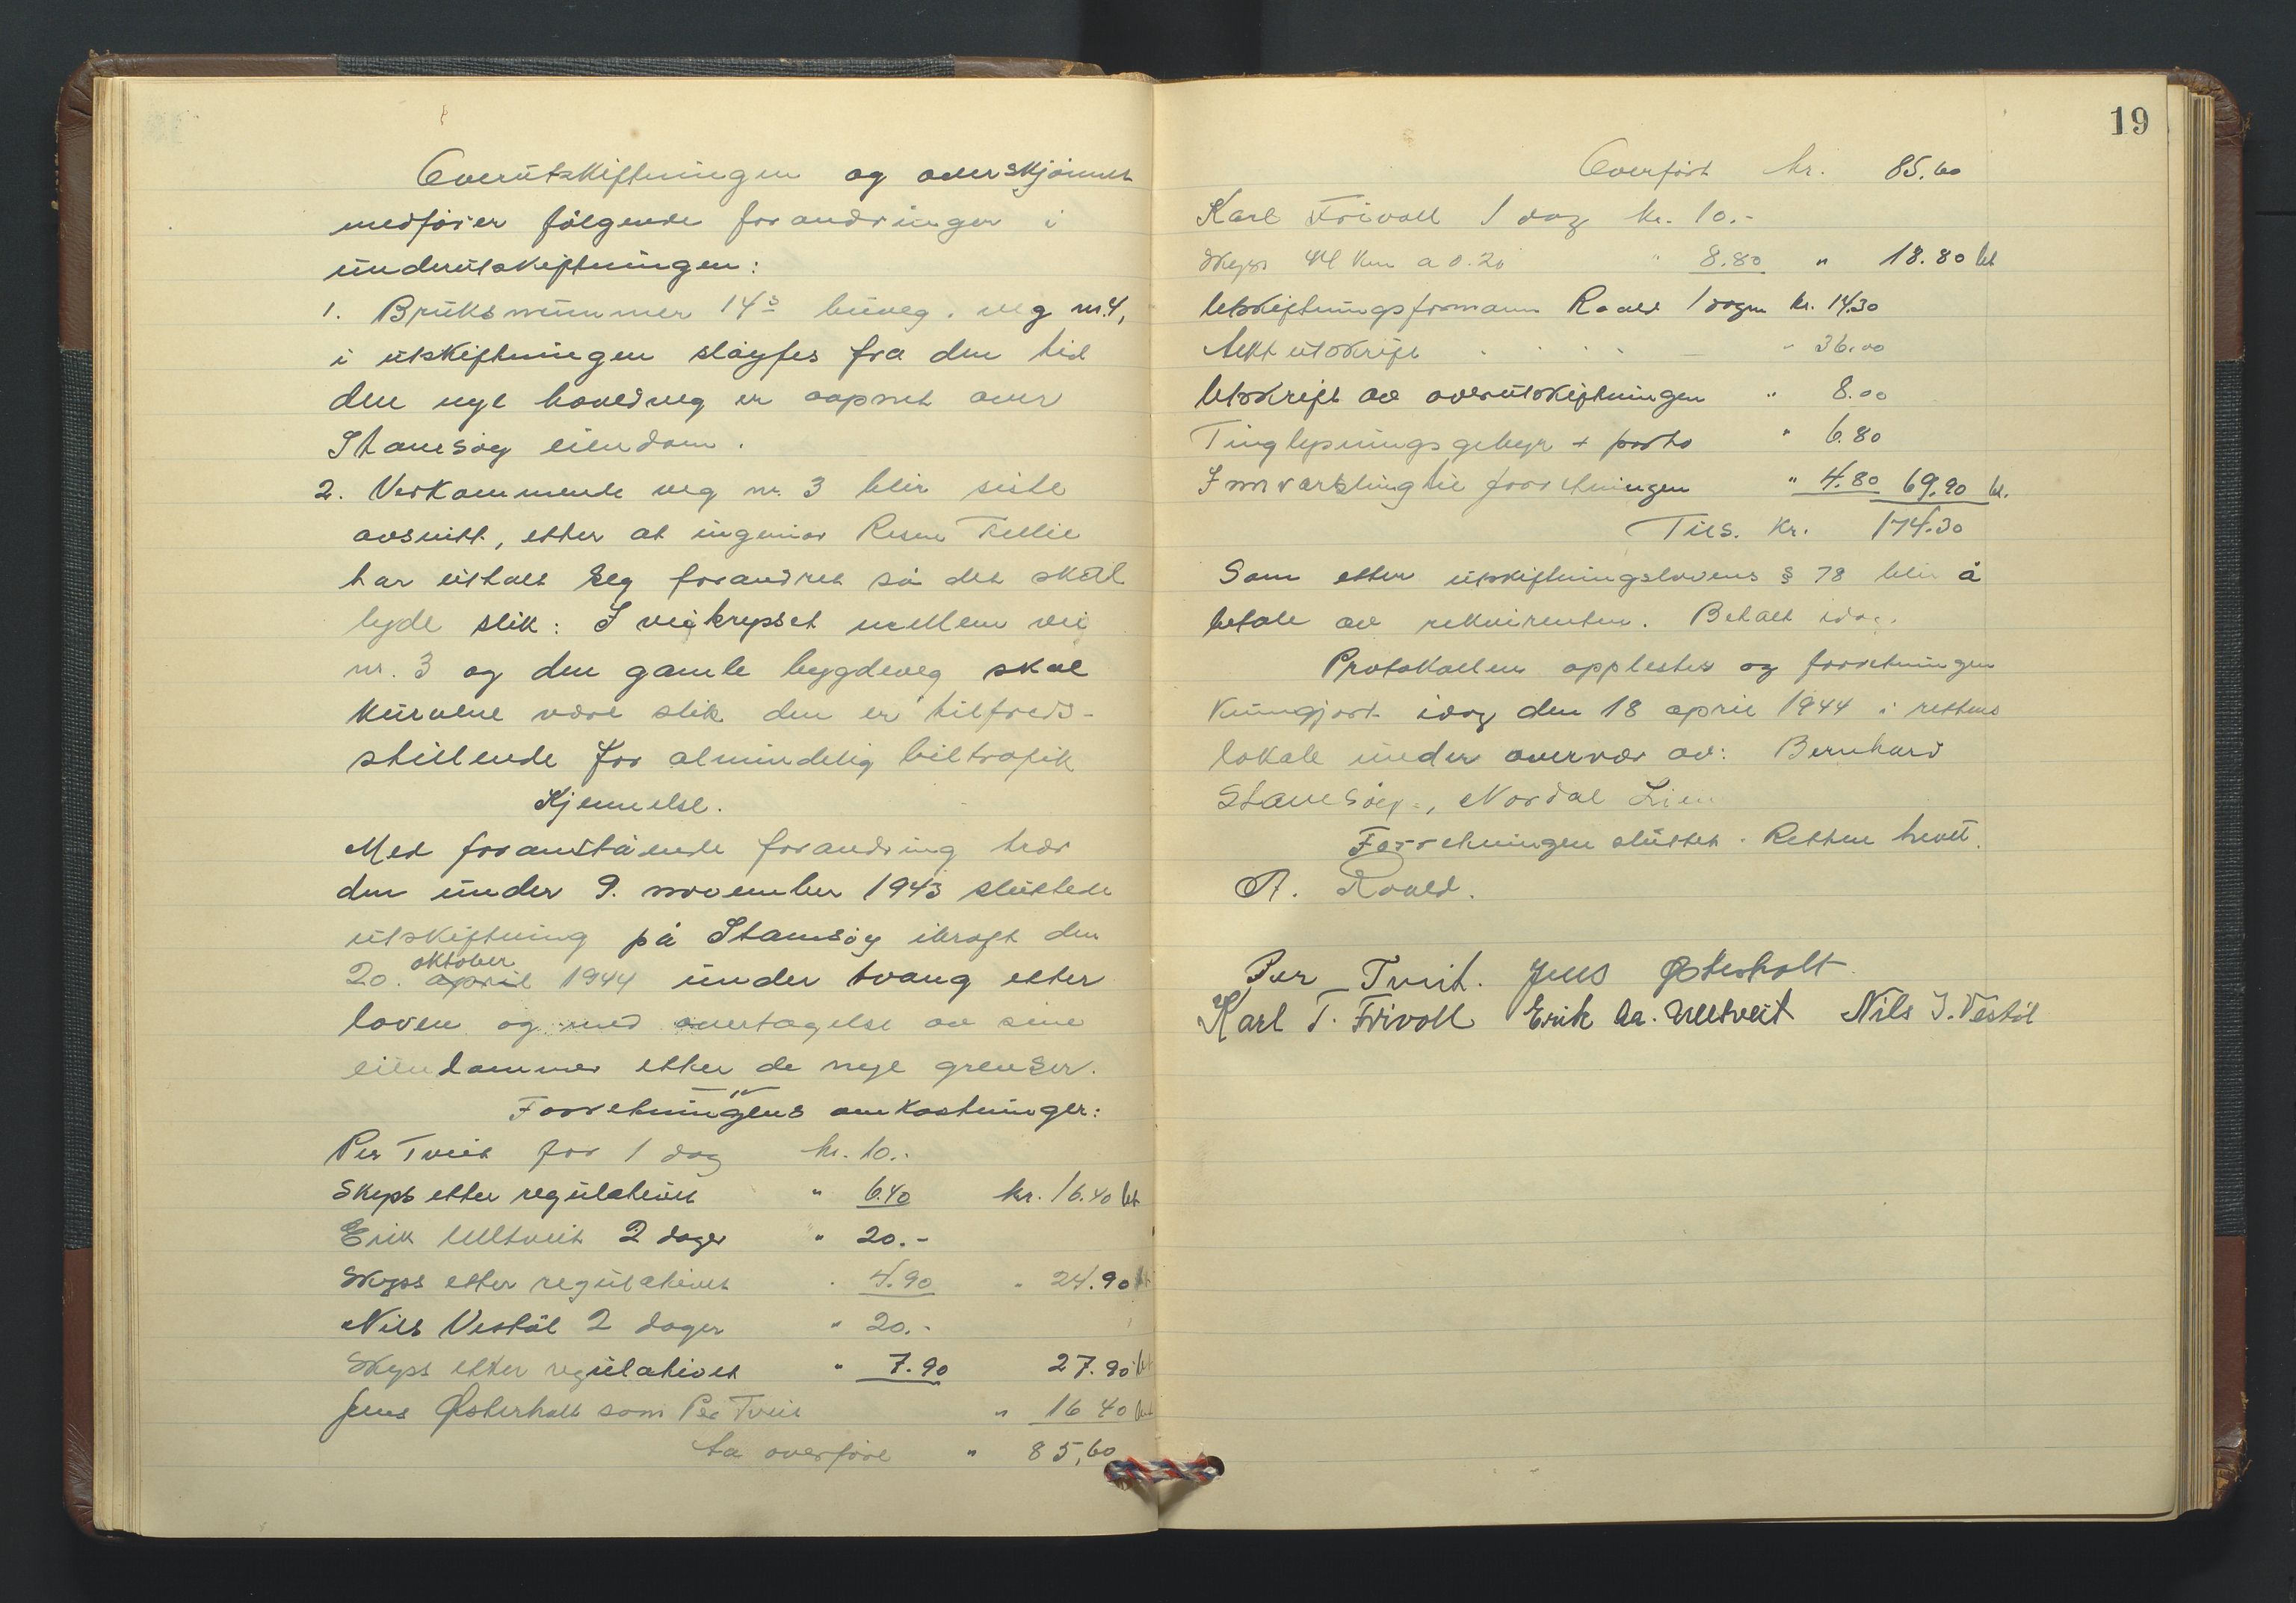 Overutskiftningen og overskjönnet
medförer fölgende forandringer i
underutskiftningen:
1. Bruksnummer 14s buveg, veg nr. 4,
i utskiftningen slöyfes fra den tid
den nye hovedveg er aapnet over
Stamsöy eiendom.
2. Vedkommende veg nr. 3 blir siste
avsnitt, etter at ingeniör
har uttalt seg forandret så det skal
lyde slik: I veikrysset mellem vei
nr. 3 og den gamle bygdeveg skal
kurvene være slik den er tilfreds-
stillende for almindelig biltrafik
Kjennelse.
Med foranstående forandring trær
den under 9. november 1943 sluttede
utskiftning på Stamsöy ikraft den
oktober
20. april 1944 under tvang etter
loven og med overtagelse av sine
eiendommer etter de nye grenser.
Forretningens omkostninger:
Per Tveit for 1 dag kr. 10.-
Skyss etter regulativet " 6.40 kr. 16.40 bt
Erik Ulltveit 2 dager " 20.-
Skyss etter regulativet " 4.90 " 24.90 bt
Nils Vestöl 2 dager " 20.-
Skyss etter regulativet " 7.90 27.90 bt
Jens Østerholt som Per Tveit " 16 40 bt
Å overföre " 85,60
19
Overfört kr. 85.60
Karl Frivoll 1 dag kr. 10.-
Skyss 44 km a 0.20 " 8.80 " 18.80 bt
Utskiftningsformann Roald 1 dagn kr. 14.30
Aktutskrift " 36.00
Utskrift av overutskiftningen " 8.00
Tinglysningsgebyr + porto " 6.80
Innvarsling til forretningen " 4.80 69.90 bt.
Tils. kr. 174.30
Som etter utskiftningslovens § 78 blir å
betale av rekvirenten. Betalt idag.
Protokollen opplestes og forretningen
kunngjort idag den 18 april 1944 i rettens
lokale under overvær av: Bernhard
Stamsöy, Nordal Lien
Forretningen sluttet. Retten hevet.
A. Roald.
Per Tveit. Jens Østerholt
Karl T. Frivoll Erik Aa. Ulltveit Nils J. Vestöl